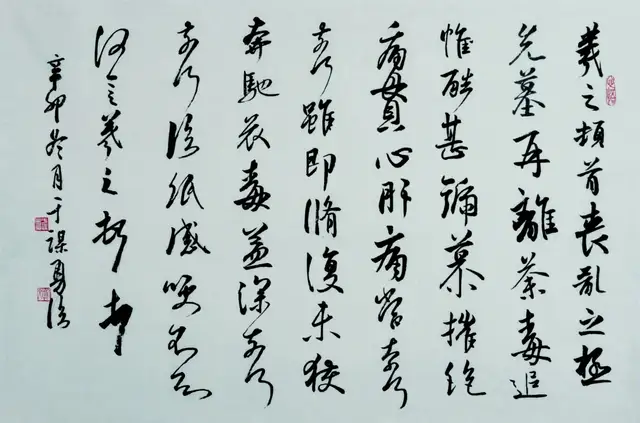 羲之頓首喪亂之極
先墓再離荼毒追
惟酷甚號慕摧絶
痛貫心肝痛當奈何
奈何雖即脩復未獲
奔馳哀毒益深奈何
奈何臨紙感哽不知
何言羲之頓首頓首
辛卯冬月于謀勇臨